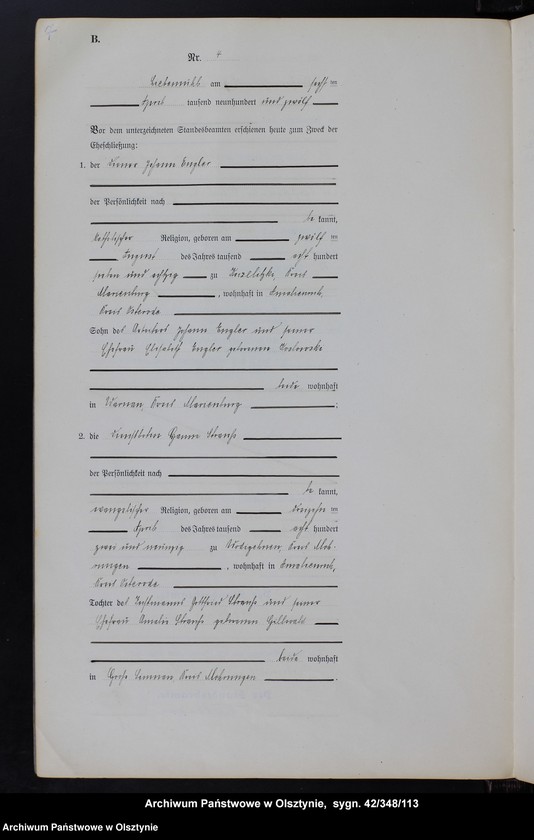 B.
Nr. 4
Liebemühl am sechs ten
April tausend neunhundert und zwölf
Vor dem unterzeichneten Standesbeamten erschienen heute zum Zweck der
Eheschließung:
1. der Diener Johann Engler
der Persönlichkeit nach
be kannt,
katholischer Religion, geboren am zwölf ten
August des Jahres tausend acht hundert
sieben und achtzig zu Kreis
Marienburg, wohnhaft in
Kreis Osterode
Sohn des Johann Engler und seiner
Ehefrau Elisabeth Engler geborenen
beide wohnhaft
in Warnau, Kreis Marienburg;
2. die Strauß
der Persönlichkeit nach
be kannt,
evangelischer Religion, geboren am ten
April des Jahres tausend acht hundert
zwei und neunzig zu Kreis Moh-
rungen, wohnhaft in
Kreis Osterode
Tochter des Gottfried Strauß und seiner
Ehefrau Amalie Strauß geborenen
beide wohnhaft
in Kreis Mohrungen.
Archiwum Państwowe w Olsztynie, sygn. 42/348/113
Archiwum Państwowe w Olsztynie